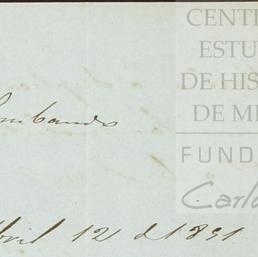 CENT
ESTU
DE HIS
DE M
FUND
Carlo
Abril 12 d 1891